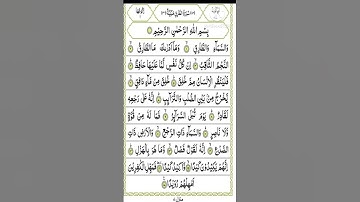 بِسْمِ اللّٰهِ الرَّحْمٰنِ الرَّحِيْمِ
وَالسَّمَآءِ وَالطَّارِقِ ۙ وَمَآ اَدْرٰىكَ مَا الطَّارِقُ ۙ
النَّجْمُ الثَّاقِبُ ۙ اِنْ كُلُّ نَفْسٍ لَّمَّا عَلَيْهَا حَافِظٌ ؕ
فَلْيَنْظُرِ الْاِنْسَانُ مِمَّ خُلِقَ ؕ خُلِقَ مِنْ مَّآءٍ دَافِقٍ ۙ
يَّخْرُجُ مِنْۢ بَيْنِ الصُّلْبِ وَالتَّرَآئِبِ ؕ اِنَّهٗ عَلٰى رَجْعِهٖ
لَقَادِرٌ ؕ يَوْمَ تُبْلَى السَّرَآئِرُ ۙ فَمَا لَهٗ مِنْ قُوَّةٍ
وَّلَا نَاصِرٍ ؕ وَالسَّمَآءِ ذَاتِ الرَّجْعِ ۙ وَالْاَرْضِ ذَاتِ
الصَّدْعِ ۙ اِنَّهٗ لَقَوْلٌ فَصْلٌ ۙ وَّمَا هُوَ بِالْهَزْلِ ؕ
اِنَّهُمْ يَكِيْدُوْنَ كَيْدًا ۙ وَّاَكِيْدُ كَيْدًا ۚ فَمَهِّلِ الْكٰفِرِيْنَ
اَمْهِلْهُمْ رُوَيْدًا